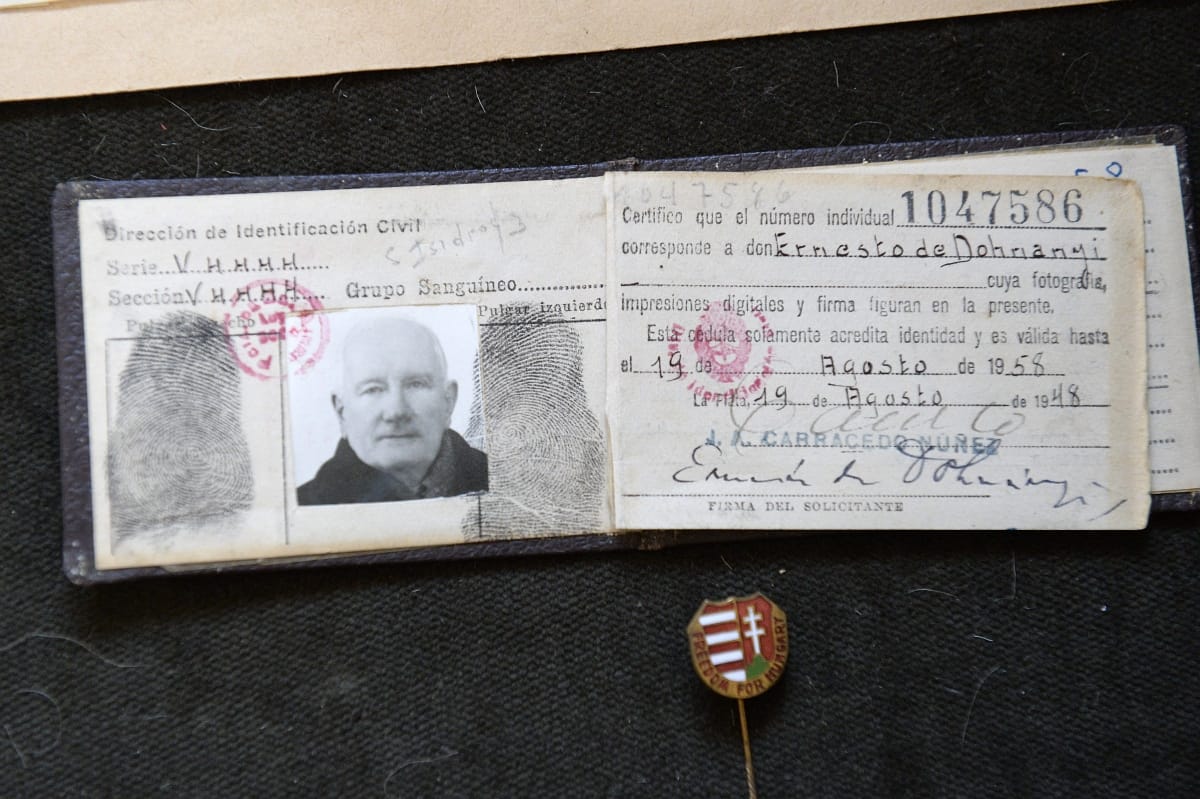 Dirección de Identificación Civil
Serie..V H.H.H.H.....
Sección V H H H H.... Grupo Sanguíneo............
Pulgar izquierdo
1047586
Certifico que el número individual 1047586
corresponde a don Ernesto de Dohnanyi
cuya fotografía,
impresiones digitales y firma figuran en la presente.
Esta cédula solamente acredita identidad y es válida hasta
el 19 de Agosto de 1958
La Plata, 19 de Agosto de 1948
J. A. CARRACEDO NUÑEZ
FIRMA DEL SOLICITANTE
FREEDOM FOR HUNGARY